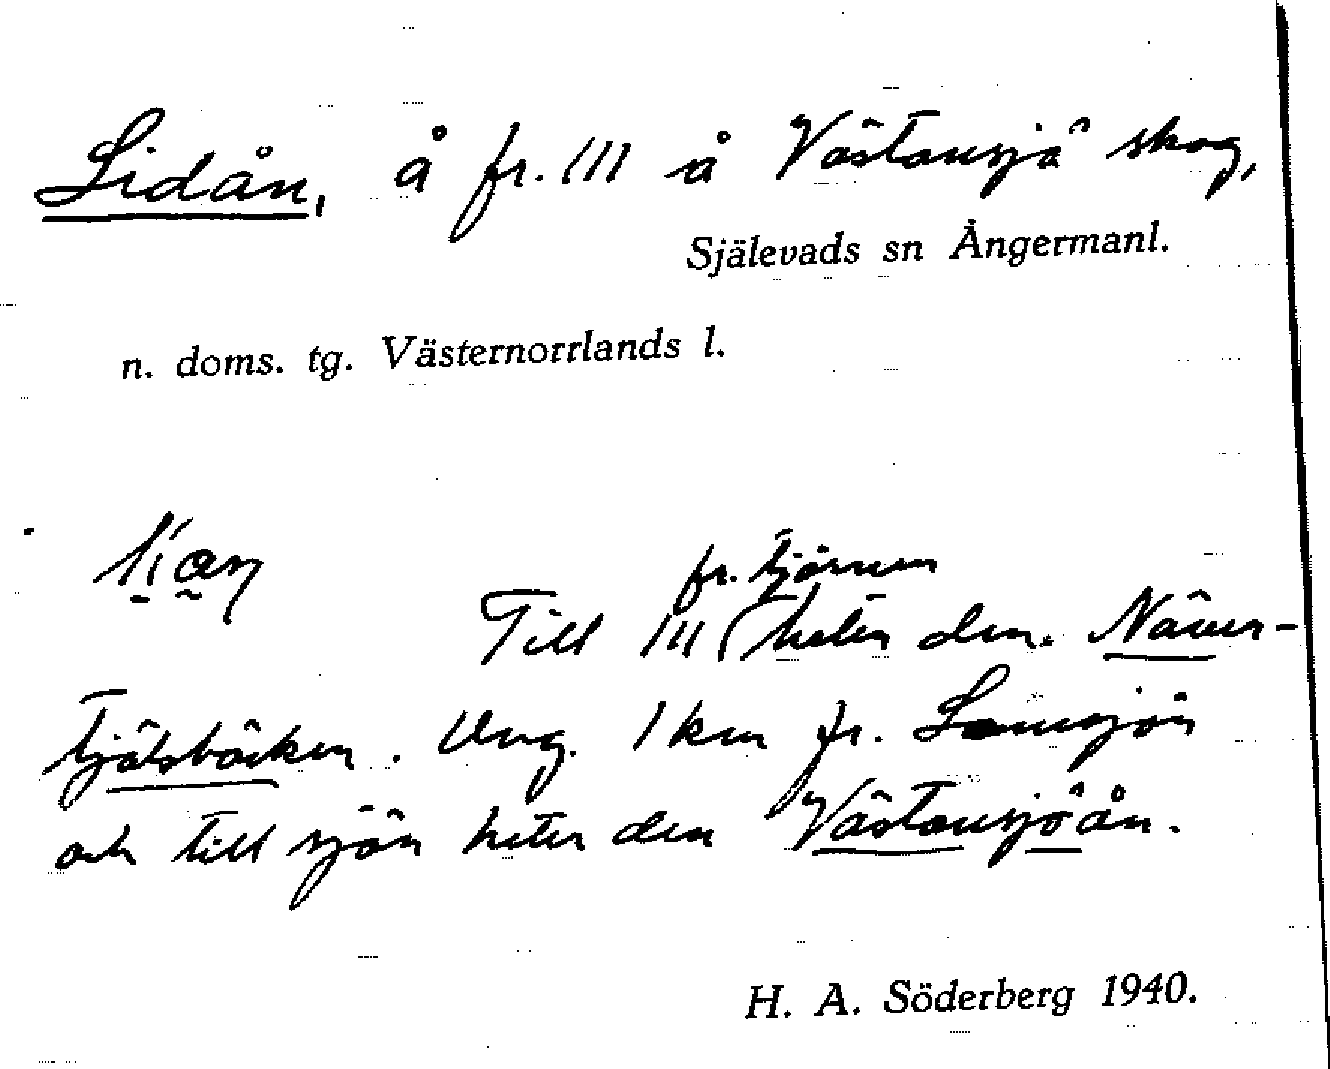 Lidån, å fr. 111 å Västansjö skog,
Själevads sn Ångermanl.
n. doms. tg. Västernorrlands l.
fr. tjärnen
Till 111 ( heter den. Näver-
tjälsbäcken. Ung. 1 km fr.
och till sjön heter den Västansjöån.
H. A. Söderberg 1940.